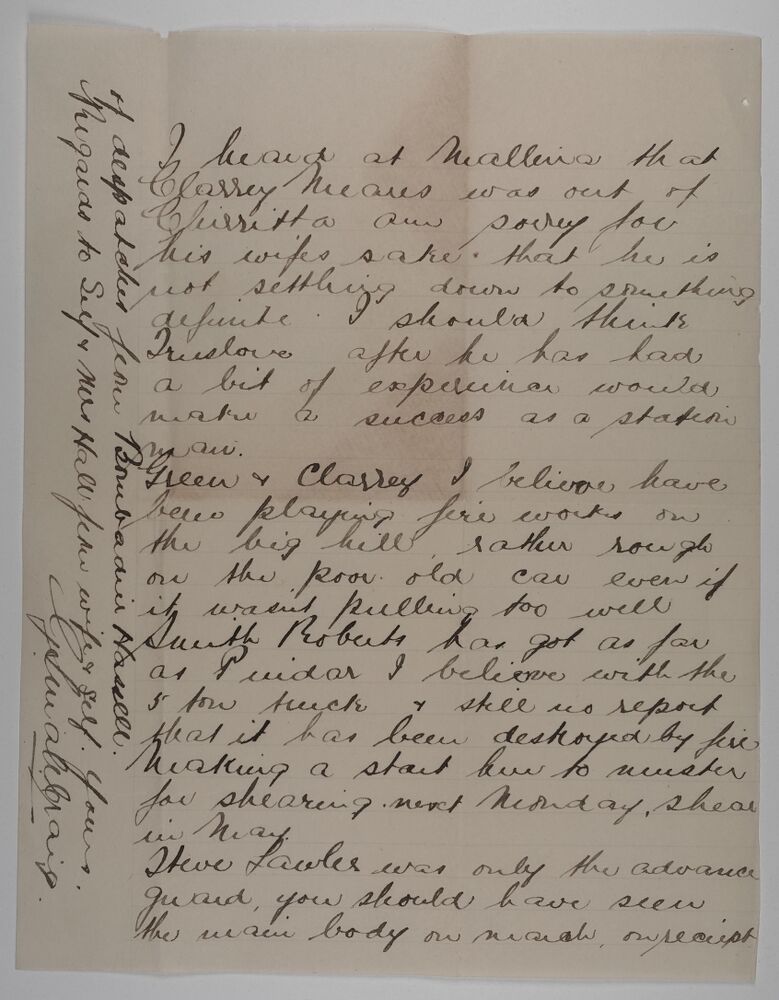 I heard at Mallina that
Clarrey Meares was out of
Chirritta am sorry for
his wifes sake. that he is
not settling down to something
definite. I should think
Truslove after he has had
a bit of experience would
make a success as a station
man.
Green & Clarrey I believe have
been playing fire works on
the big hill, rather rough
on the poor old car even if
it wasnt pulling too well
Smith Roberts has got as far
as Puidar I believe with the
5 ton truck & still no report
that it has been destroyed by fire
Making a start here to muster
for shearing next Monday, shear
in May.
Steve Lawler was only the advance
guard, you should have seen
the main body on march, on reciept
of despatches from Bombadier Hassell.
Regards to Self & Mrs Hall from wife & self. Yours.